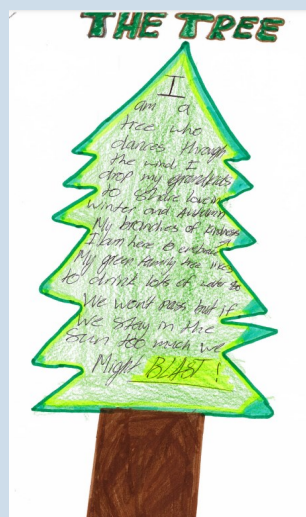 THE TREE
I
am a
tree who
dances through
the wind I
drop my grandkids
to share love in
winter and Autumn
My branches of kindness
I am here to embrace
My green family tree likes
to drink lots of water so
We wont pass but if
we stay in the
sun too much we
Might BLAST!